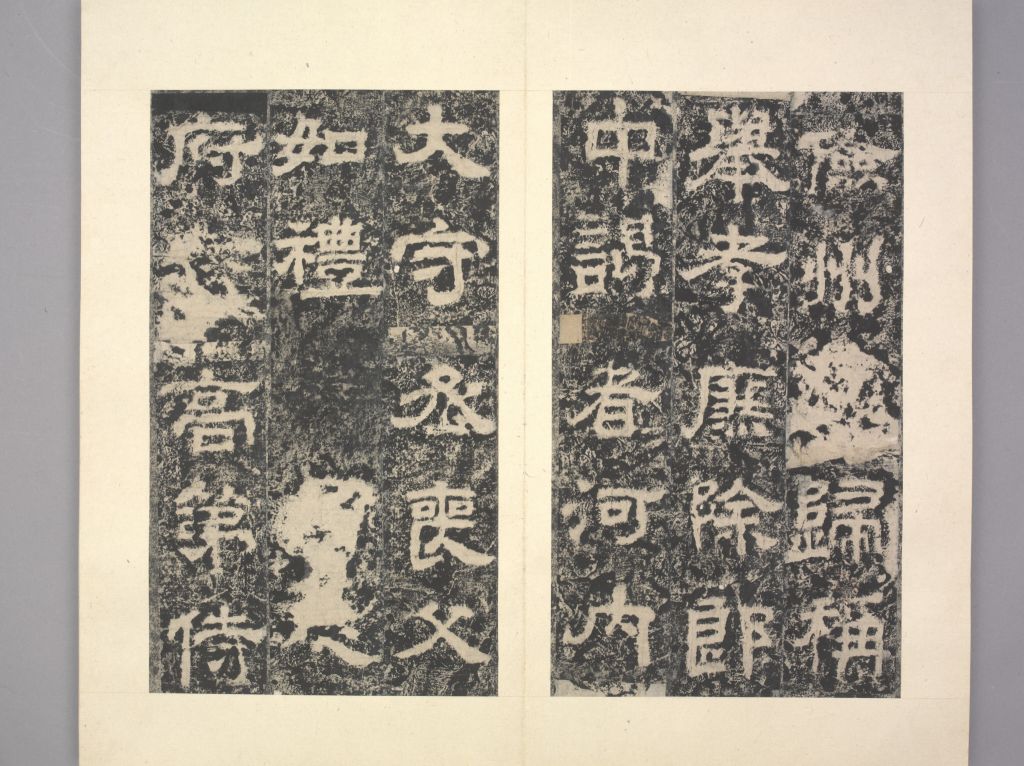 儉州歸稱
舉孝廉除郎
中謁者河內
大守丞喪父
如禮
府高第侍